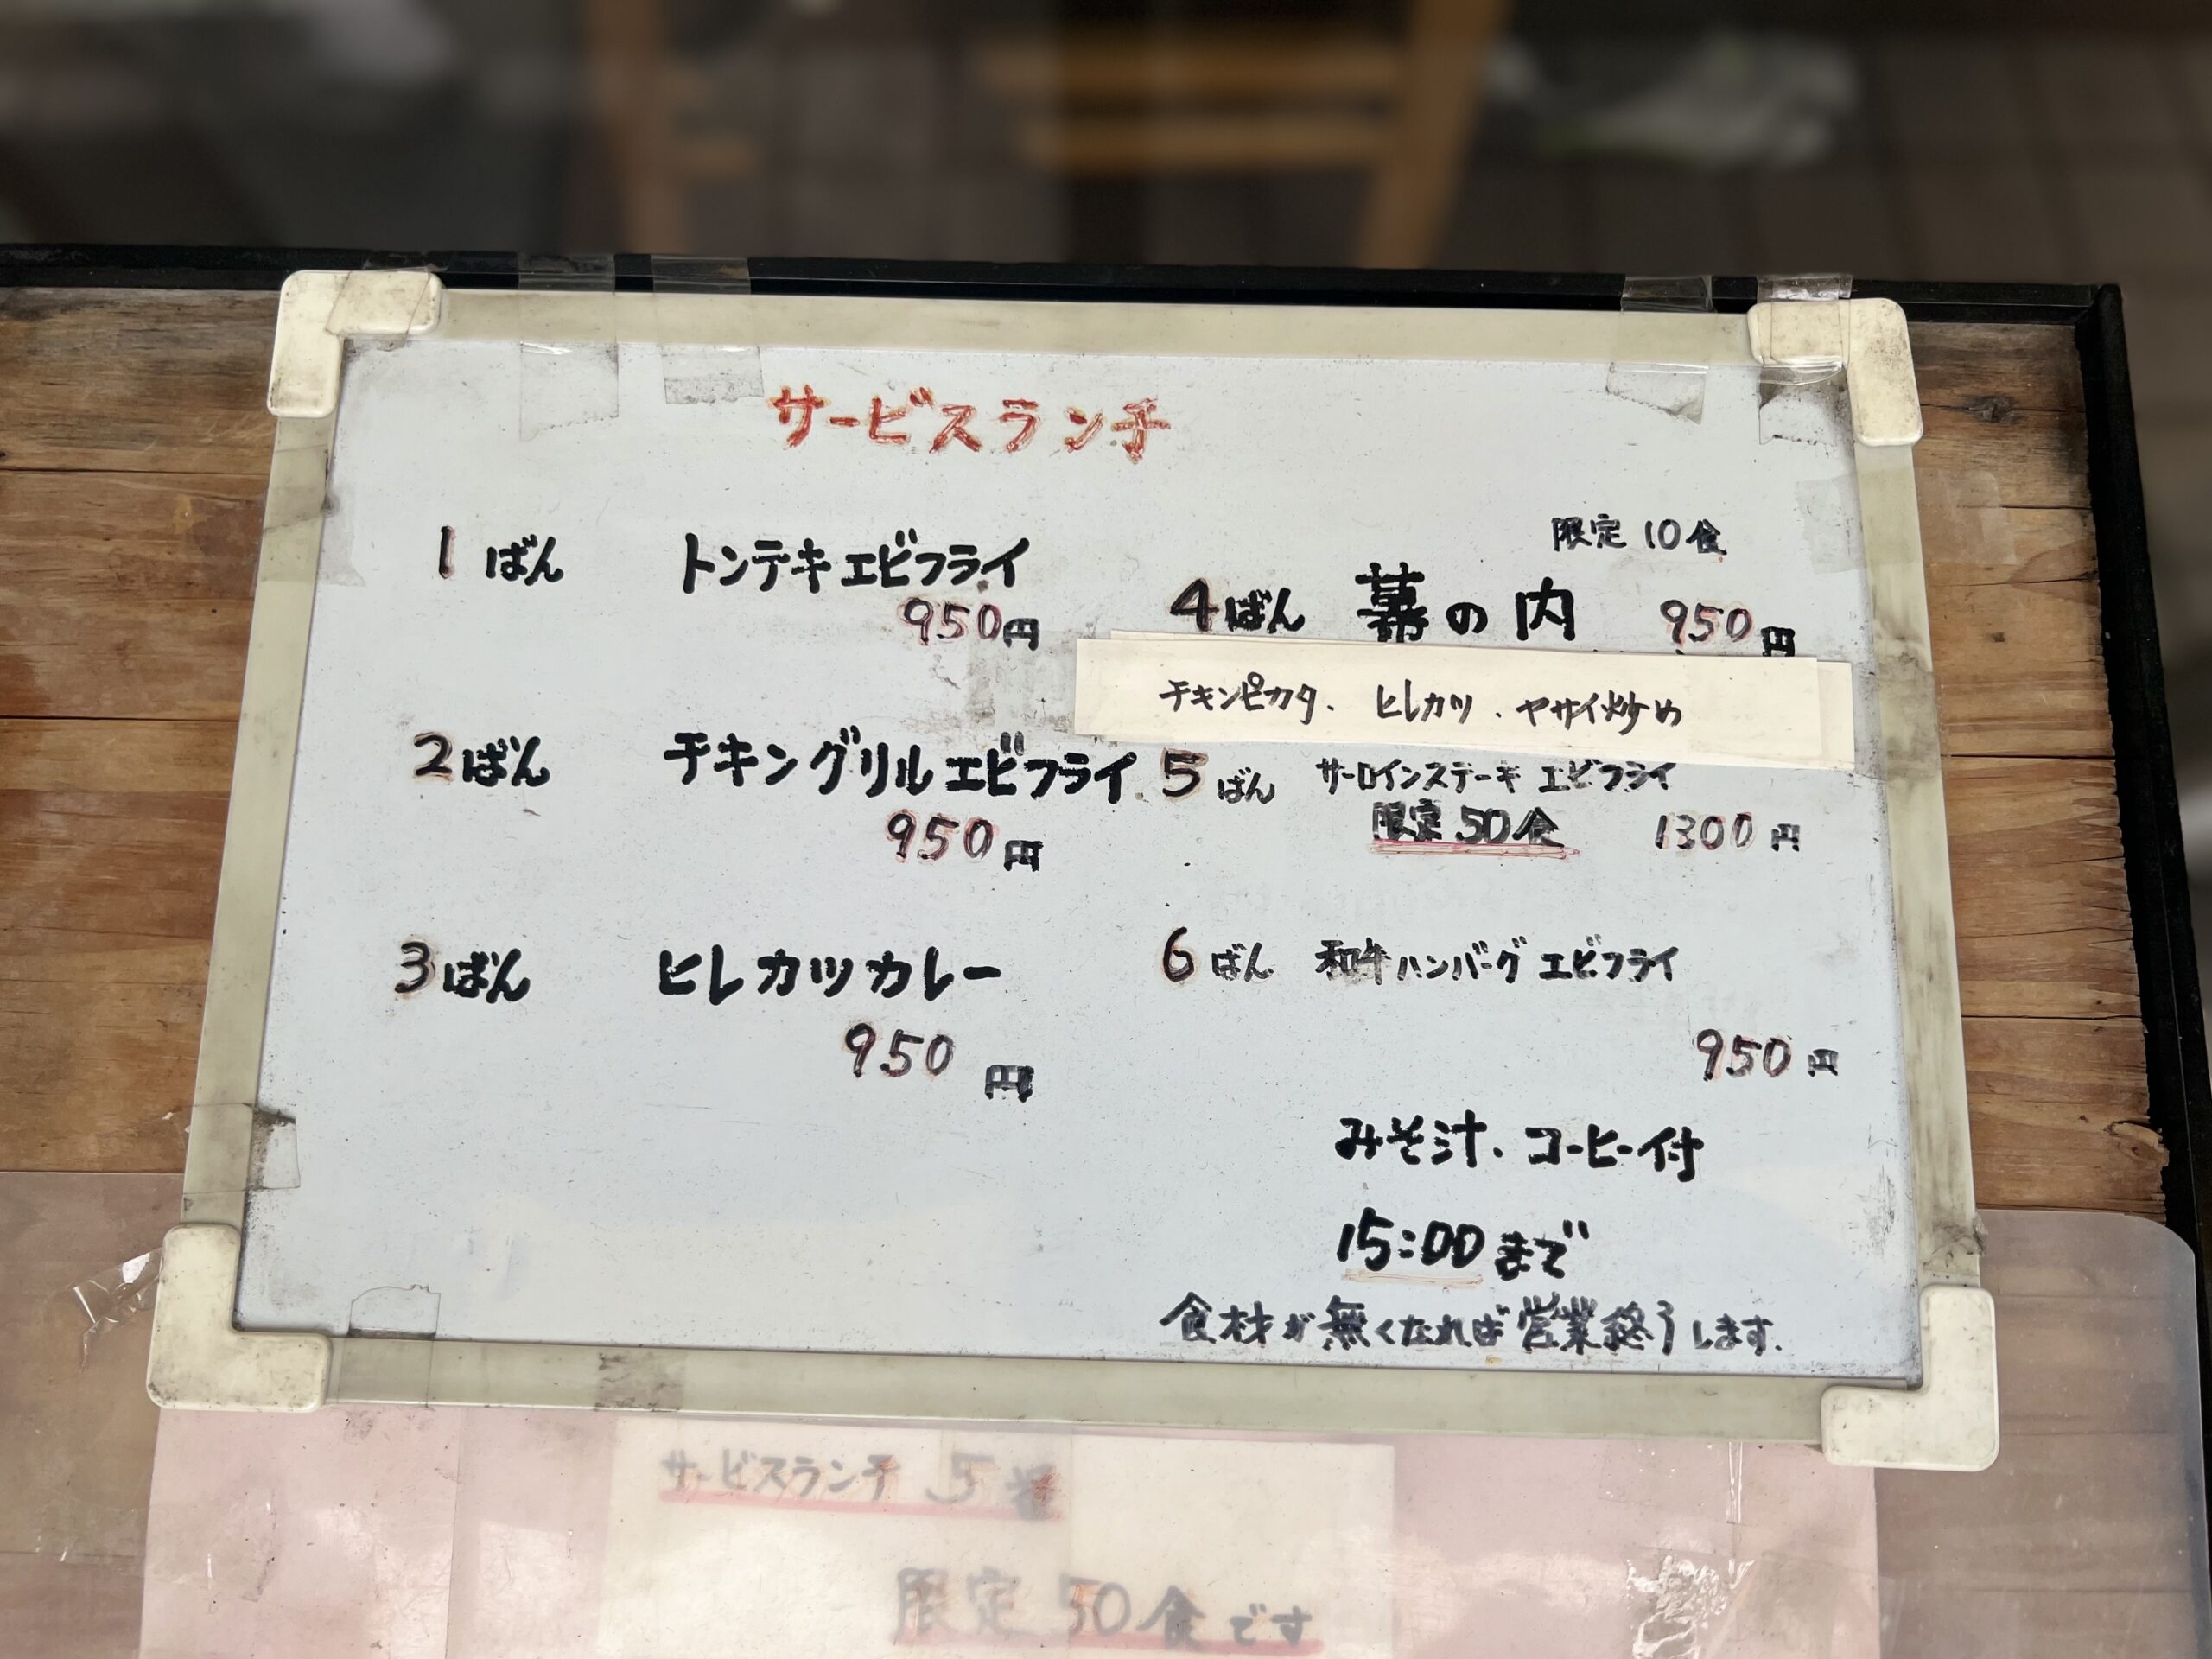 サービスランチ
1ばん トンテキエビフライ
950円
2ばん チキングリルエビフライ
950円
3ばん ヒレカツカレー
950円
限定10食
4ばん 幕の内 950円
チキンピカタ、ヒレカツ、ヤサイ炒め
5ばん サーロインステーキ エビフライ
限定50食 1300円
6ばん 和牛ハンバーグ エビフライ
950円
みそ汁、コーヒー付
15:00まで
食材が無くなれば営業終了します.
サービスランチ 5番
限定50食です